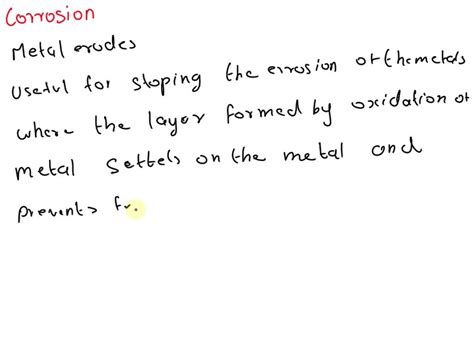 Corrosion
Metal erodes
Useful for stoping the errosion of themetals
where the layor formed by oxidation of
metal settels on the metal and
prevents fr